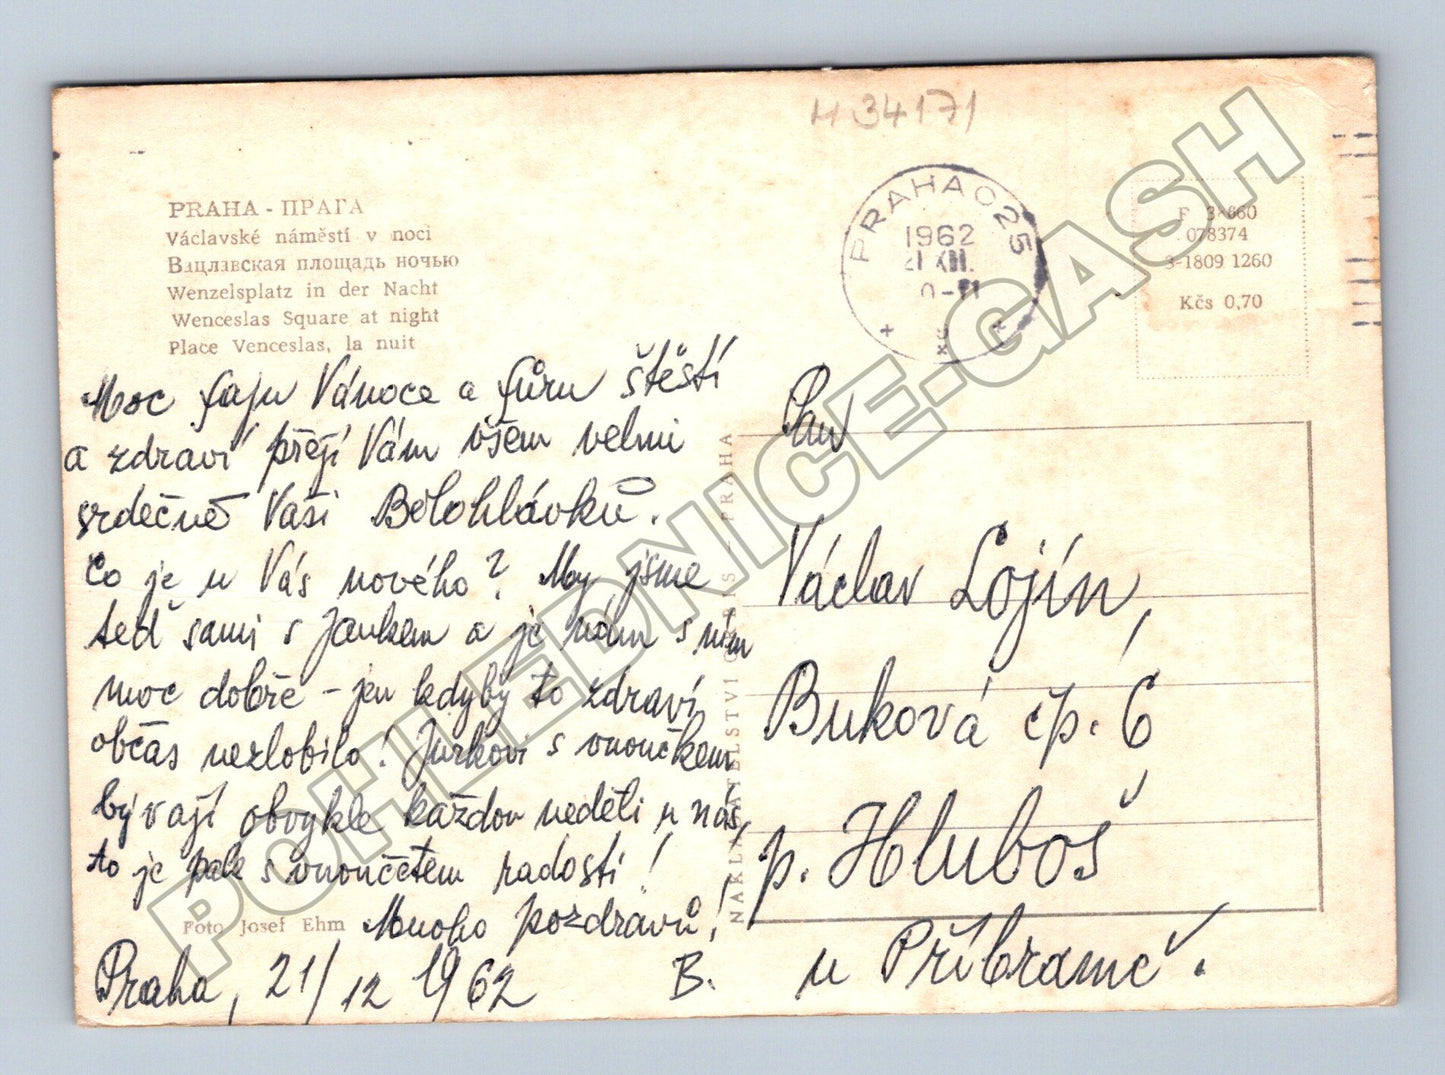 H 34171
PRAHA - ПРАГА
Václavské náměstí v noci
Вацлавская площадь ночью
Wenzelsplatz in der Nacht
Wenceslas Square at night
Place Venceslas, la nuit
PRAHA 025
1962
21 XII.
F 3-660
078374
3-1809 1260
Kčs 0,70
Moc fajn Vánoce a fůru štěstí
a zdraví přejí Vám všem velmi
srdečně Vaši Bělohlávků.
Co je u Vás nového? My jsme
teď sami s Jankem a je nám s ním
moc dobře – jen kdyby to zdraví
občas nezlobilo! Jurkovi s vnoučkem
bývají obvykle každou neděli u nás,
to je pak s vnoučetem radosti!
Mnoho pozdravů!
B.
Praha, 21/12 1962
Foto Josef Ehm
NAKLADATELSTVÍ ORBIS - PRAHA
Pan
Václav Lojín,
Buková čp. 6
p. Hluboš
u Příbramě.
POHLEDNICE-GASH